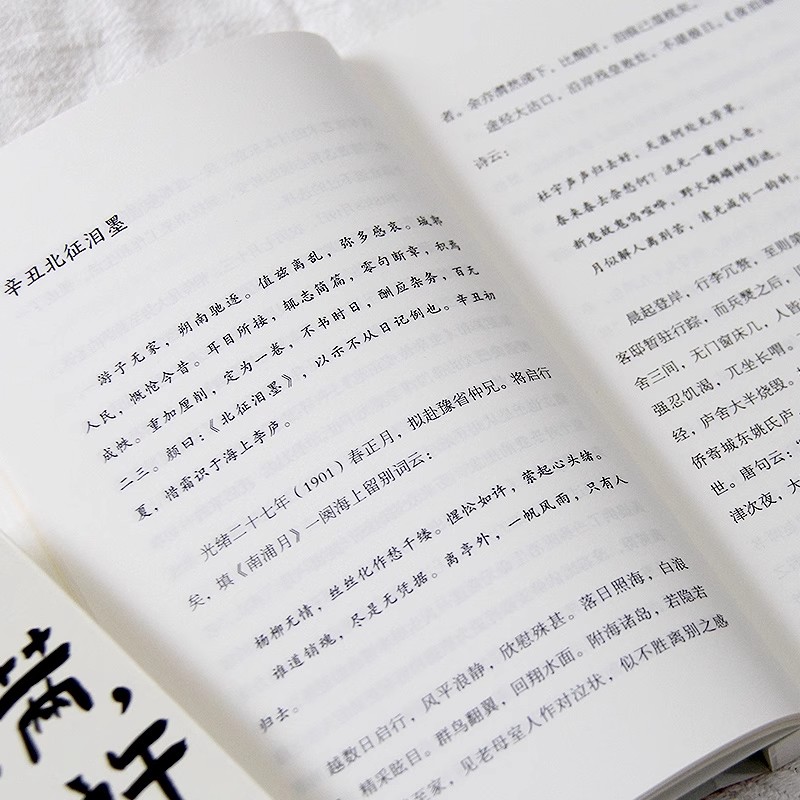 辛丑北征泪墨
游子无家，朔南驰逐。值兹离乱，弥多感哀。城郭
人民，慨怆今昔。耳目所接，辄志简篇，零句断章，积焉
成帙。重加厘削，定为一卷，不书时日，酬应杂务，百无
二三。颜曰：《北征泪墨》，以示不从日记例也。辛丑初
夏，惜霜识于海上李庐。
光绪二十七年（1901）春正月，拟赴豫省仲兄。将启行
矣，填《南浦月》一阕海上留别词云：
杨柳无情，丝丝化作愁千缕。惺忪如许，萦起心头绪。
谁道销魂，尽是无凭据。离亭外，一帆风雨，只有人
归去。
越数日启行，风平浪静，欣慰殊甚。落日照海，白浪
精采眩目。群鸟翻翼，回翔水面。附海诸岛，若隐若
至家，见老母室人作对泣状，似不胜离别之感
者。余亦潸然涕下，比醒时，泪痕已湿枕矣。
途经大沽口，沿岸残垒败灶，不堪极目。《夜泊塘
诗云：
杜宇声声归去好，天涯何处无芳草。
春来春去奈愁何？流光一霎催人老。
新鬼故鬼鸣喧哗，野火磷磷树影遮。
月似解人离别苦，清光减作一钩斜。
晨起登岸，行李冗赘，至则第
客邸暂驻行踪，而兵燹之后，旧
舍三间，无门窗床几，人皆
强忍饥渴，兀坐长喟。
经，庐舍大半烧毁。
侨寄城东姚氏庐，
世。唐句云：
津次夜，大
满，